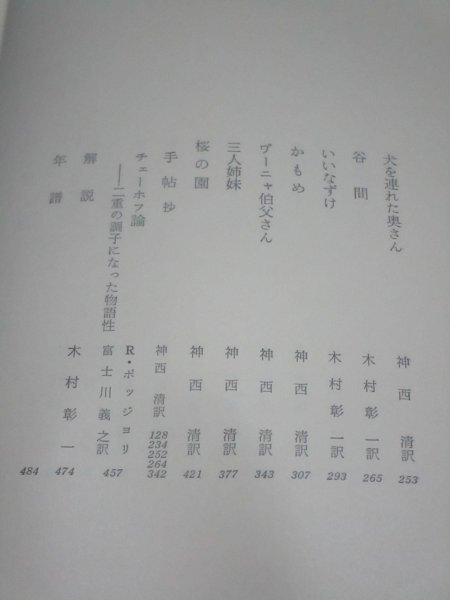 犬を連れた奥さん 神西 清訳 253
谷間 木村彰一訳 265
いいなずけ 木村彰一訳 293
かもめ 神西 清訳 307
ヴーニャ伯父さん 神西 清訳 343
三人姉妹 神西 清訳 377
桜の園 神西 清訳 421
手帖抄 神西 清訳 128 234 252 264 342
チェーホフ論 R・ポッジョリ
――二重の調子になった物語性 富士川義之訳 457
解説 木村彰一 474
年譜 484